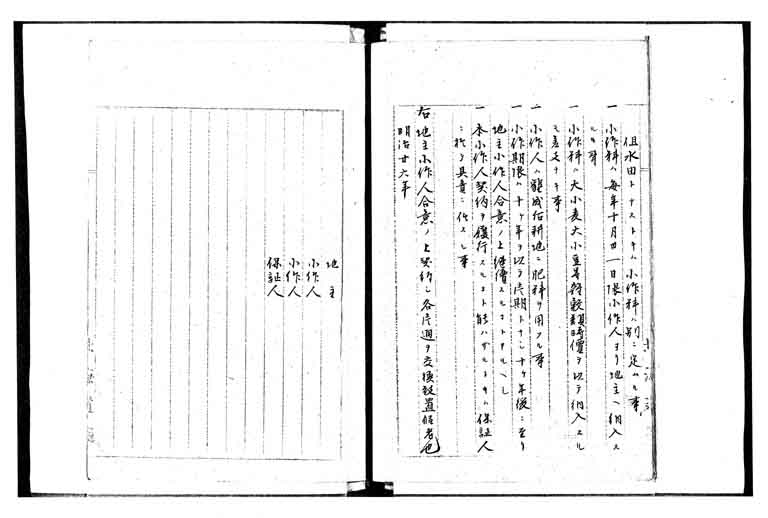 但水田トナストキハ小作料ハ別ニ定ムル事
一 小作料ハ毎年十月卅一日限小作人ヨリ地主ヘ納入ス
ル事
一 小作料ハ大小麦大小豆等 時價ヲ以テ納入スル
モ差支ナキ事
一 小作人ハ 耕地ニ肥料ヲ用フル事
一 小作期限ハ十ヶ年ヲ以テ一期トナシ十ヶ年後ニ至リ
地主小作人合意ノ上継續スルコトアルヘシ
一 本小作人契約ヲ履行スルコト能ハザルトキハ保証人
ニ於テ其責ニ任スル事
右地主小作人合意ノ上契約シ各 通ヲ交換 置候者也
明治廿六年
地主
小作人
小作人
保証人